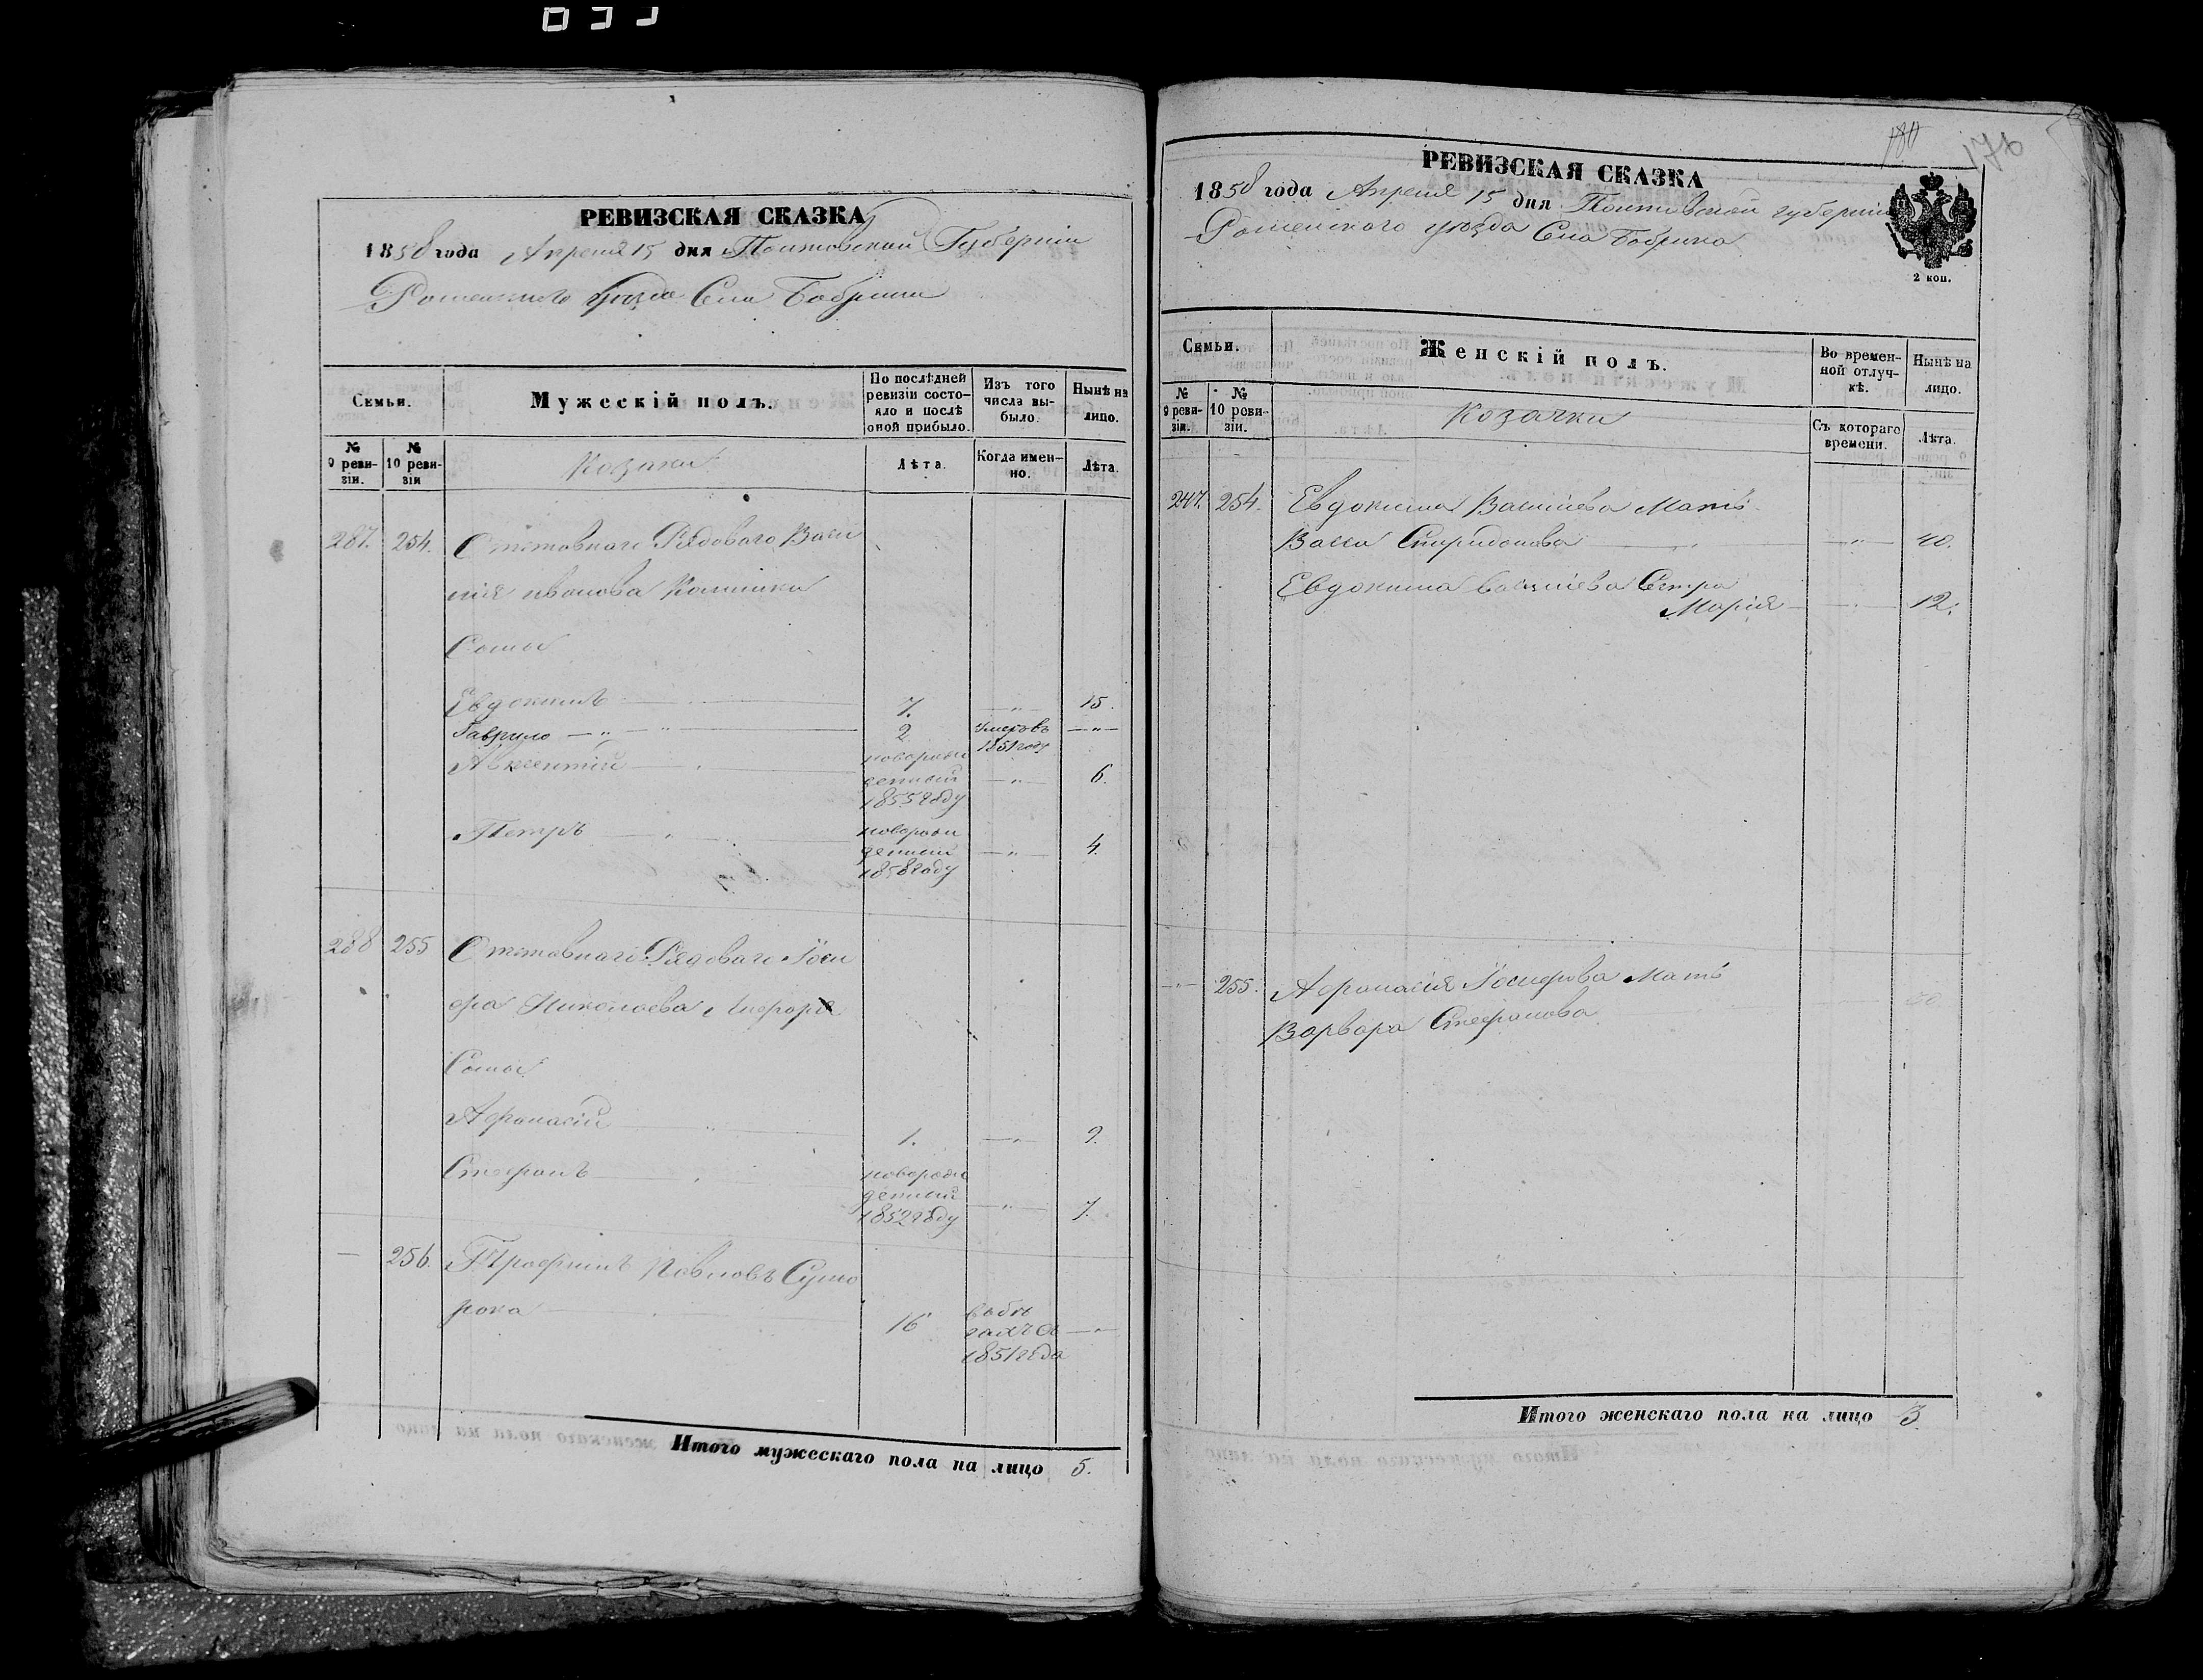 РЕВИЗСКАЯ СКАЗКА
1858 года Апреля 15 дня Полтавской Губерніи
Роменского Уезда Села Бобрика
Семьи.
Мужескій полъ.
По послѣдней ревизіи состояло и послѣ оной прибыло.
Изъ того числа выбыло.
Нынѣ на лицо.
№ 9 ревизіи.
№ 10 ревизіи
Козаки
Лѣта.
Когда именно.
Лѣта.
287. 254. Отставнаго Рядоваго Васи
лія Иванова
Сыны
Евдокимъ 7. 15.
Гаврило 2 умеръ въ 1851 году
Авксентій новорожденный 1855 году 6.
Петръ новорожденный 1858 году 4.
288 255 Отставнаго Рядоваго Іоси
фа Николаева
Сыны
Афанасій 1. 9.
Стефанъ новорожденный 1852 году 7.
256. Трофимъ Павловъ
16 1851 года
Итого мужескаго пола на лицо 5.
180
176
РЕВИЗСКАЯ СКАЗКА
1858 года Апреля 15 дня Полтавской губерніи
Роменского уезда Села Бобрика
2 коп.
Семьи.
Женскій полъ.
Во временной отлучкѣ.
Нынѣ на лицо.
№ 9 ревизіи.
№ 10 ревизіи.
Козачки
Съ котораго времени.
Лѣта.
247. 254. Евдокима Василіева Мать
Васса Спиридонова 40.
Евдокима Василіева Сестра
Марія 12.
255. Афанасія Іосифова Мать
Варвара Стефанова
Итого женскаго пола на лицо 3.